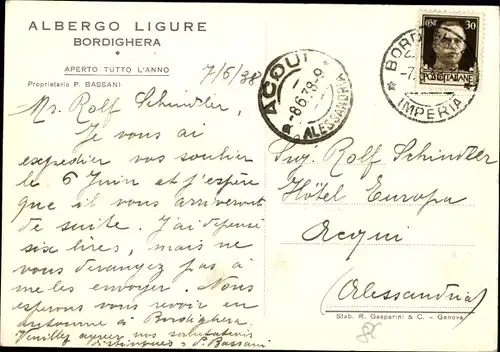 ALBERGO LIGURE
BORDIGHERA
APERTO TUTTO L'ANNO
Proprietario P. BASSANI
7/6/38
Mr. Rolf Schindler,
Je vous ai
expedier vos soulier
le 6 Juin et j'espère
que il vous arriveront
de suite. J'ai depensé
six lires, mais ne
vous derangez pas à
me les envoyer. Nous
esperons vous revoir en
automne à Bordighera.
Veuillez agreer nos salutations
distinguées P. Bassani
ACQUI
-8.6.38-9
ALESSANDRIA
BORD
-7.
IMPERIA
30
POSTE ITALIANE
Sig. Rolf Schindler
Hôtel Europa
Acqui
(Alessandria)
Stab. R. Gasparini & C. - Genova